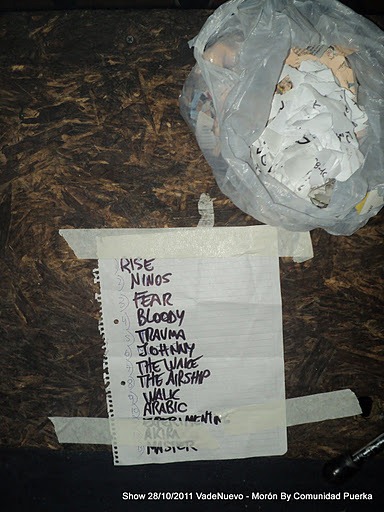 RISE
NINOS
FEAR
BLOODY
TRAUMA
JOHNNY
THE WAKE
THE AIRSHIP
WALK
ARABIC
AKIRA
MASTER
Show 28/10/2011 VadeNuevo - Morón By Comunidad Puerka